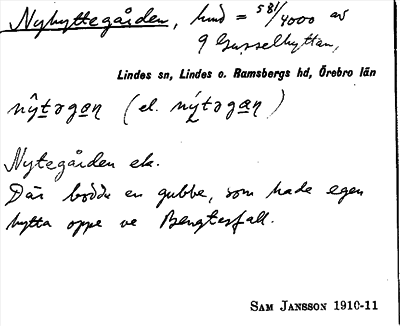 Nyhyttegården, hmd = 581/4000 av
9 Gusselhyttan,
Lindes sn, Lindes o. Ramsbergs hd, Örebro län
nŷtəgaṇ (el. nýtəgaṇ)
Nytegården ek.
Där bodde en gubbe, som hade egen
hytta oppe ve Bengtesfall.
SAM JANSSON 1910-11